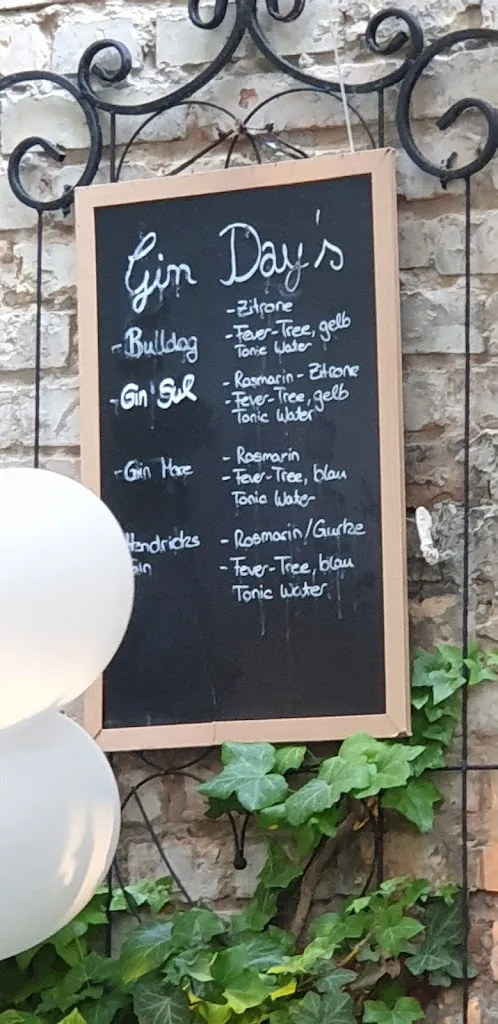 Gin Day's
- Bulldog
- Zitrone
- Fever-Tree, gelb
Tonic Water
- Gin Sul
- Rosmarin - Zitrone
- Fever-Tree, gelb
Tonic Water
- Gin Mare
- Rosmarin
- Fever-Tree, blau
Tonic Water
Hendricks
Gin
- Rosmarin/Gurke
- Fever-Tree, blau
Tonic Water